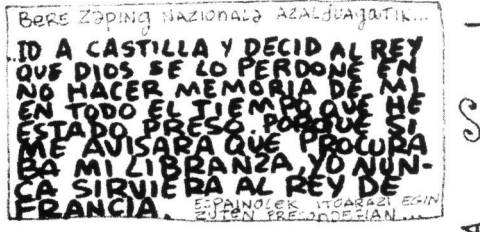 BERE ZAPING NAZIONALA AZALDUAgATIK...
ID A CASTILLA Y DECID AL REY
QUE DIOS SE LO PERDONE EN
NO HACER MEMORIA DE MI
EN TODO EL TIEMPO QUE HE
ESTADO PRESO. PORQUE SI
ME AVISARA QUE PROCURA
BA MI LIBRANZA, YO NUN-
CA SIRVIERA AL REY DE
FRANCIA.
ESPAINOLEK ITOARAZI EGIN
ZUTEN PRESONDEGIAN...